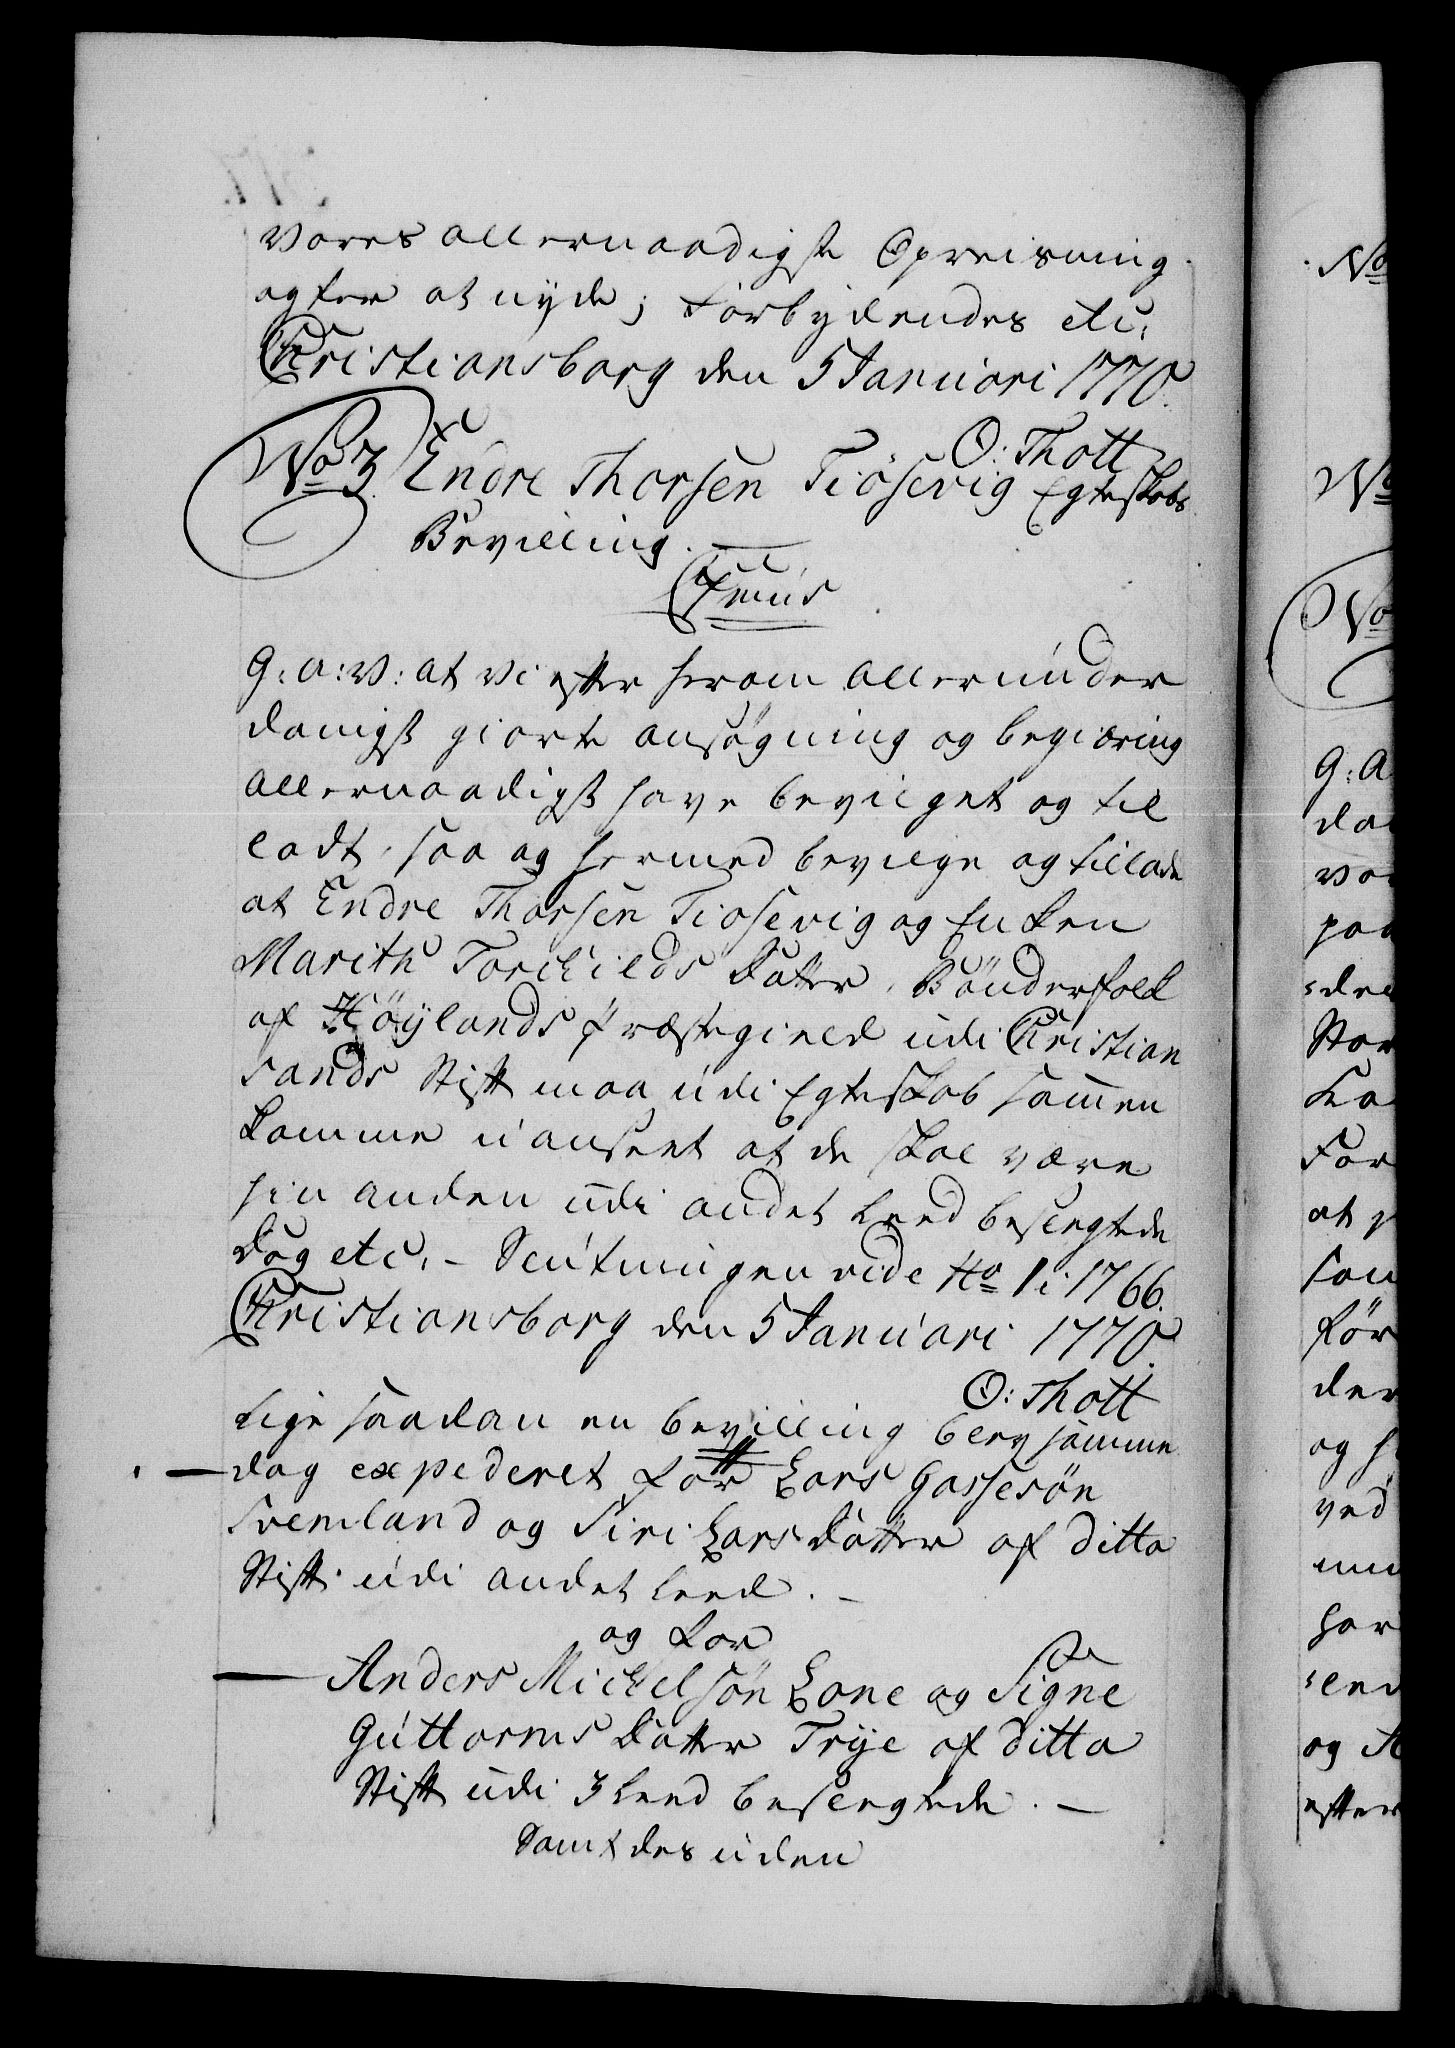 vores allernaadigste Opreisning
og her at nyde; Forbydendes etc.
Christiansborg den 5 Januari 1770.
O: Thott
No 3. Endre Thorsen Tiösevig Egteskabs
Bevilling.
G: A: V: at Vi efter herom allerunder
danigst giorte ansøgning og begiæring
allernaadigst have bevilget og til
ladt, saa og hermed bevilge og tillade
at Endre Thorsen Tiosevig og Enken
Marith Torchilds Datter, Bönderfolk
af Höylands Præstegield udi Christian
sands Stift maa udi Egteskab sammen
komme uanseet at de skal være
hin anden udi andet Leed besvogrede
Dog etc. - Slutningen vide No 1 i 1766.
Christiansborg den 5 Januari 1770.
O: Thott
Lige saadan en bevilling blev samme
dag expederet for Lars Gassesön
Svemland og Siri Lars Datter af ditto
Stift udi andet Leed. -
og for
Anders Michelsön Lone og Signe
Guttorms Datter Trye af ditto
Stift udi 3 Leed beslegtede. -
Samt desuden
No
No
No
G: A